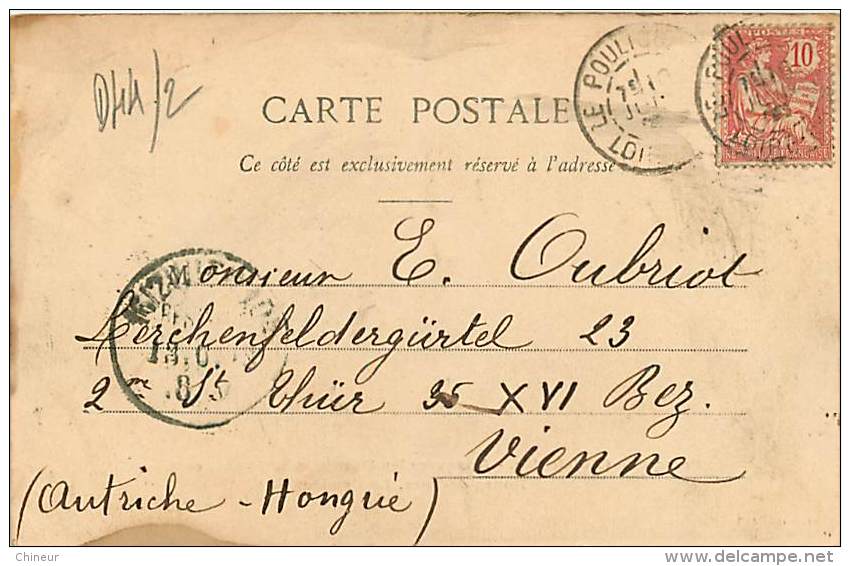 D44/2
CARTE POSTALE
Ce côté est exclusivement réservé à l'adresse
LE POULI
POSTES
10
Monsieur E. Oubriot
Lerchenfeldergürtel 23
2me St Thür 35 XVI Bez.
Vienne
(Autriche-Hongrie)
Chineur
delcampe.net